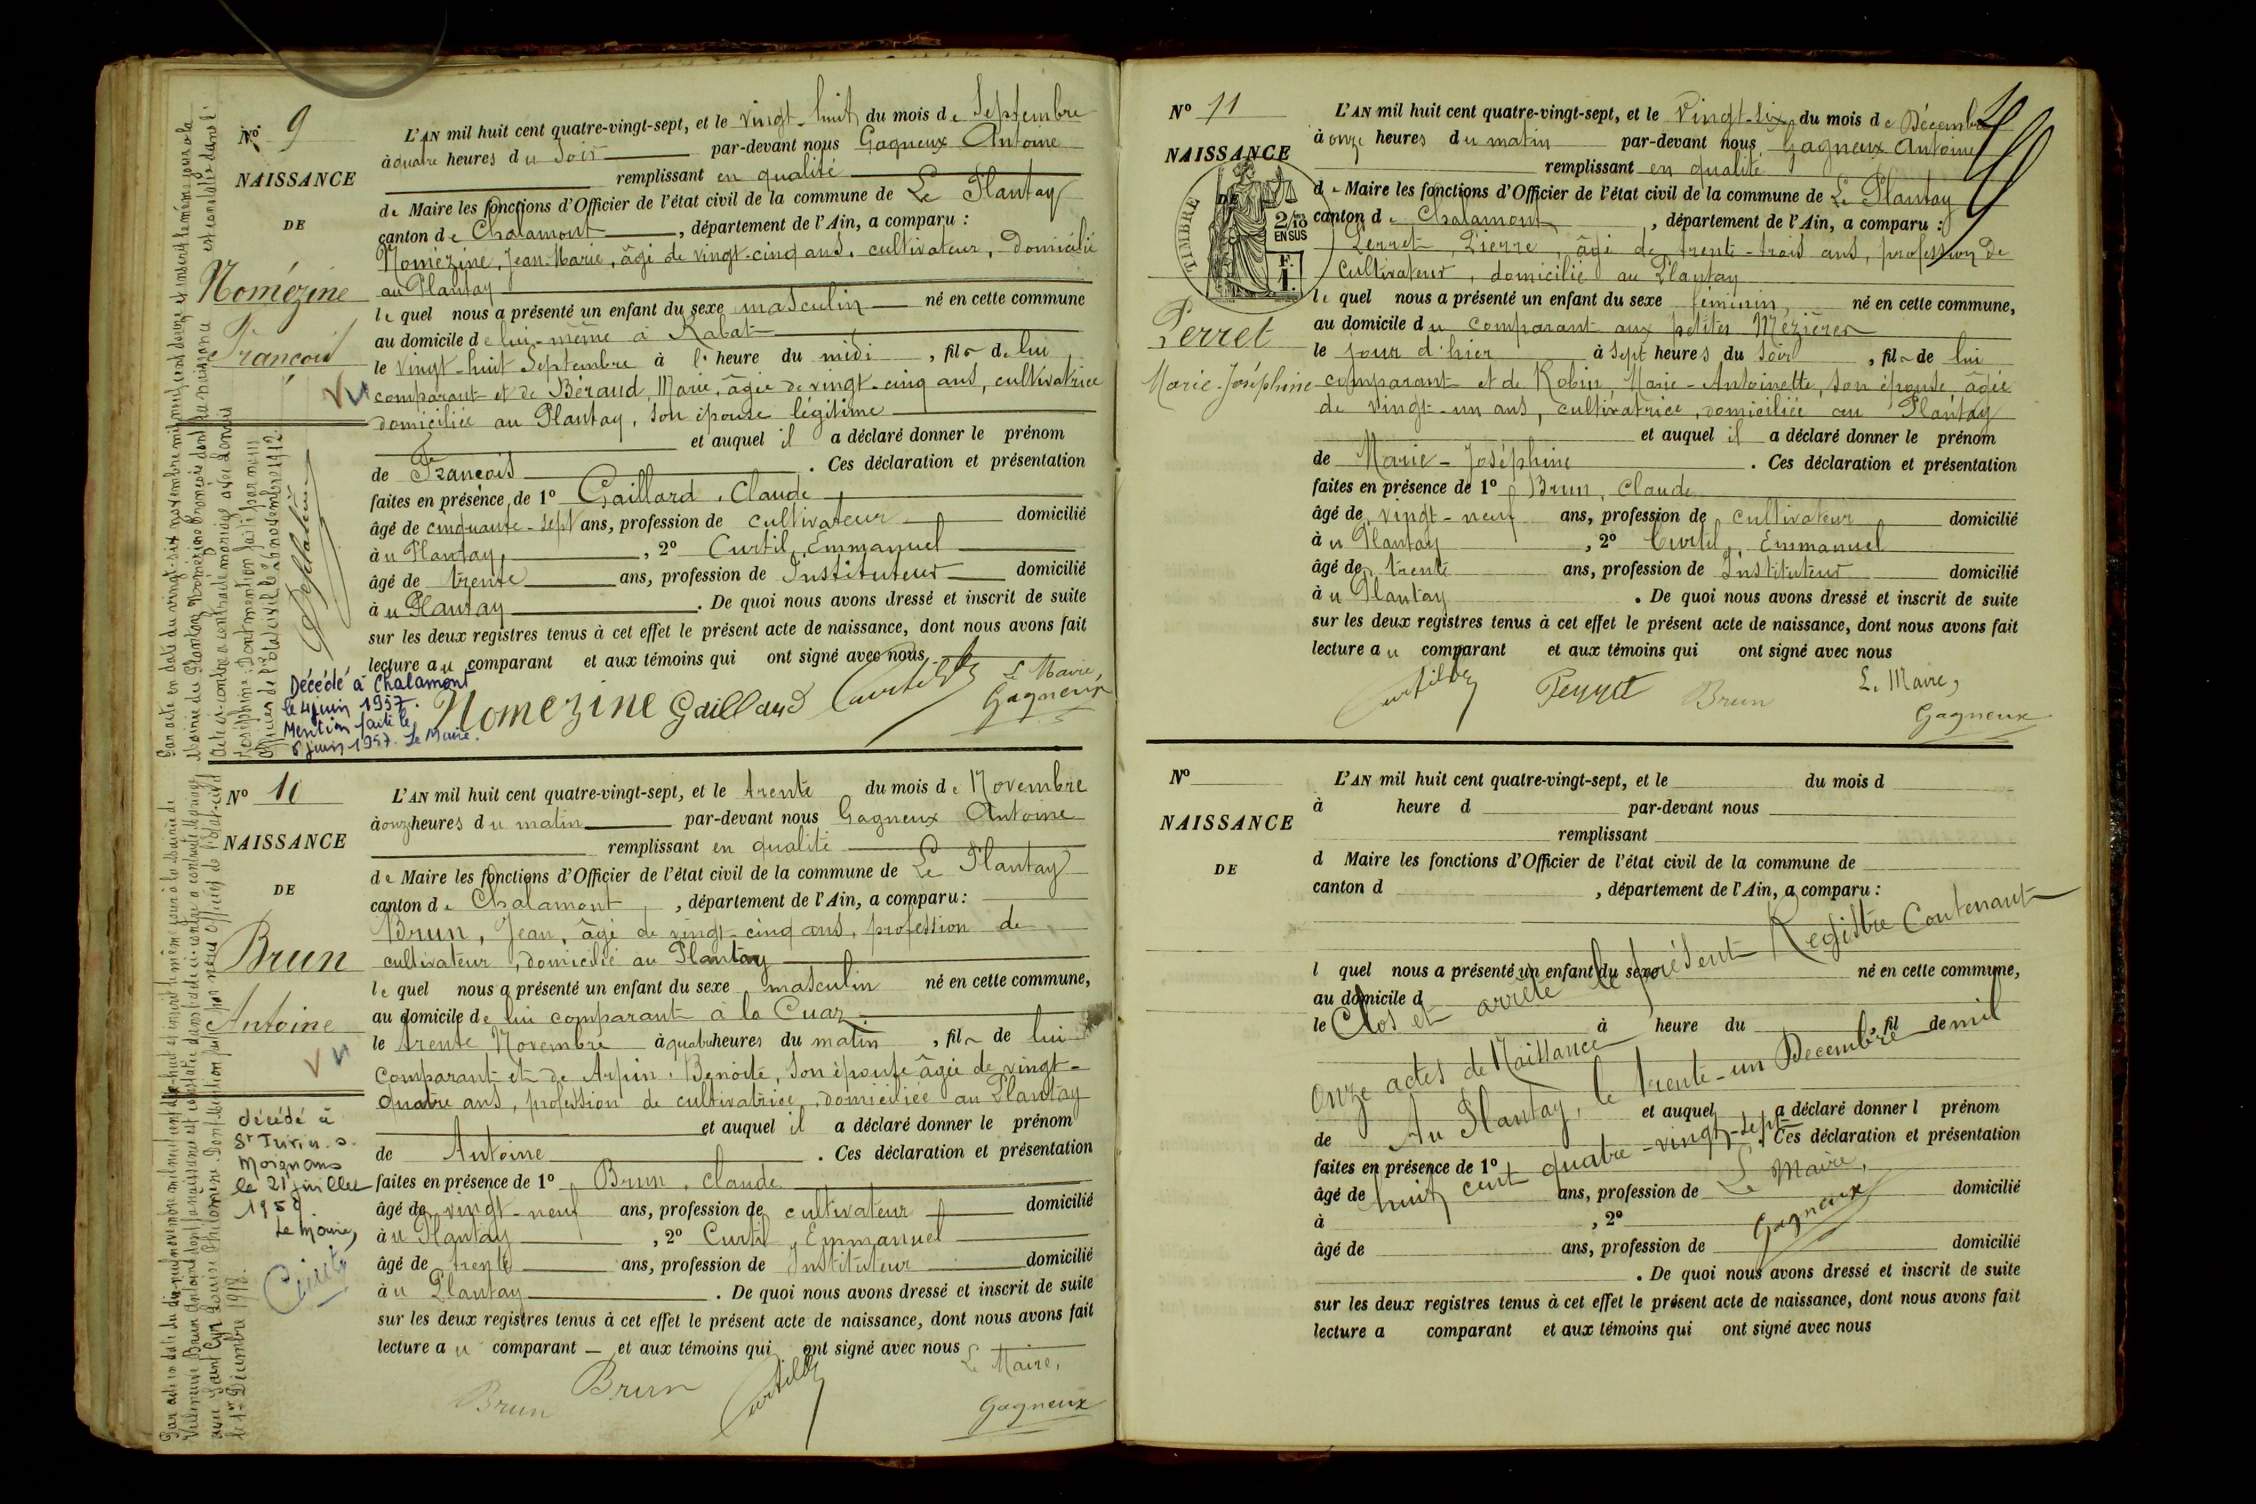 Nº 9
NAISSANCE
DE
Nomézine
François
L'AN mil huit cent quatre-vingt-sept, et le vingt-huit du mois de Septembre
à quatre heures du Soir par-devant nous Gagneux Antoine
remplissant en qualité
de Maire les fonctions d'Officier de l'état civil de la commune de Le Plantay
canton de Chalamont, département de l'Ain, a comparu :
Nomézine, Jean-Marie, âgé de vingt-cinq ans, cultivateur, domicilié
au Plantay
lequel nous a présenté un enfant du sexe masculin né en cette commune
au domicile de lui-même à Rabat
le vingt-huit Septembre à l' heure du midi, fils de lui
comparant et de Béraud, Marie, âgée de vingt-cinq ans, cultivatrice
domiciliée au Plantay, son épouse légitime
et auquel il a déclaré donner le prénom
de François. Ces déclaration et présentation
faites en présence de 1º Gaillard, Claude
âgé de cinquante-sept ans, profession de cultivateur domicilié
au Plantay, 2º Curtil, Emmanuel
âgé de trente ans, profession de Instituteur domicilié
au Plantay. De quoi nous avons dressé et inscrit de suite
sur les deux registres tenus à cet effet le présent acte de naissance, dont nous avons fait
lecture au comparant et aux témoins qui ont signé avec nous
Nomezine Gaillard Curtil Le Maire,
Gagneux
Par acte en date du vingt-six novembre mil neuf cent douze et inscrit le même jour à la
Mairie du Plantay Nomézine François dont la naissance est constatée dans l'
acte ci-contre a contracté mariage avec
Joséphine. Dont mention faite par nous
Officier de l'état civil le 26 novembre 1912.
Décédé à Chalamont
le 4 juin 1957.
Mention faite le
6 juin 1957. Le Maire.
Nº 10
NAISSANCE
DE
Brun
Antoine
L'AN mil huit cent quatre-vingt-sept, et le trente du mois de Novembre
à onze heures du matin par-devant nous Gagneux Antoine
remplissant en qualité
de Maire les fonctions d'Officier de l'état civil de la commune de Le Plantay
canton de Chalamont, département de l'Ain, a comparu :
Brun, Jean, âgé de vingt-cinq ans, profession de
cultivateur, domicilié au Plantay
lequel nous a présenté un enfant du sexe masculin né en cette commune,
au domicile de lui comparant à la Cuaz
le trente Novembre à quatre heures du matin, fils de lui
comparant et de Arpin, Benoite, son épouse âgée de vingt-
quatre ans, profession de cultivatrice, domiciliée au Plantay
et auquel il a déclaré donner le prénom
de Antoine. Ces déclaration et présentation
faites en présence de 1º Brun, Claude
âgé de vingt-neuf ans, profession de cultivateur domicilié
au Plantay, 2º Curtil, Emmanuel
âgé de trente ans, profession de Instituteur domicilié
au Plantay. De quoi nous avons dressé et inscrit de suite
sur les deux registres tenus à cet effet le présent acte de naissance, dont nous avons fait
lecture au comparant et aux témoins qui ont signé avec nous
Le Maire,
Brun Brun Curtil Gagneux
Par acte en date du dix-neuf novembre mil neuf cent dix-huit et inscrit le même jour à la Mairie de
Villeneuve Brun Antoine dont la naissance est constatée dans l'acte ci-contre a contracté mariage
avec Louise Philomène. Dont mention faite par nous Officier de l'état-civil
le 1er Décembre 1918.
décédé à
St Turin
Moignans
le 21 juillet
1959
Le Maire,
Nº 11
NAISSANCE
DE
TIMBRE
2/10
EN SUS
F.
1.
Perret
Marie-Joséphine
L'AN mil huit cent quatre-vingt-sept, et le vingt-six du mois de Décembre
à onze heures du matin par-devant nous Gagneux Antoine
remplissant en qualité
de Maire les fonctions d'Officier de l'état civil de la commune de Le Plantay
canton de Chalamont, département de l'Ain, a comparu :
Perret, Pierre, âgé de trente-trois ans, profession de
cultivateur, domicilié au Plantay
lequel nous a présenté un enfant du sexe féminin, né en cette commune,
au domicile du comparant aux petites Mézières
le jour d'hier à sept heures du soir, fil de lui
comparant et de Robin, Marie-Antoinette, son épouse, âgée
de vingt-un ans, cultivatrice, domiciliée au Plantay
et auquel il a déclaré donner le prénom
de Marie-Joséphine. Ces déclaration et présentation
faites en présence de 1º Brun, Claude
âgé de vingt-neuf ans, profession de cultivateur domicilié
au Plantay, 2º Curtil, Emmanuel
âgé de trente ans, profession de Instituteur domicilié
au Plantay. De quoi nous avons dressé et inscrit de suite
sur les deux registres tenus à cet effet le présent acte de naissance, dont nous avons fait
lecture au comparant et aux témoins qui ont signé avec nous
Curtil Perret Brun Le Maire,
Gagneux
Nº
NAISSANCE
DE
L'AN mil huit cent quatre-vingt-sept, et le du mois d
à heure d par-devant nous
remplissant
d Maire les fonctions d'Officier de l'état civil de la commune de
canton d , département de l'Ain, a comparu :
l quel nous a présenté un enfant du sexe né en cette commune,
au domicile d
le à heure du , fil de
et auquel a déclaré donner l prénom
de . Ces déclaration et présentation
faites en présence de 1º
âgé de ans, profession de domicilié
à , 2º
âgé de ans, profession de domicilié
. De quoi nous avons dressé et inscrit de suite
sur les deux registres tenus à cet effet le présent acte de naissance, dont nous avons fait
lecture a comparant et aux témoins qui ont signé avec nous
Clos et arrêté le présent Registre Contenant
Onze actes de Naissance
Au Plantay, le trente-un Decembre mil
huit cent quatre-vingt-sept
Le Maire,
Gagneux